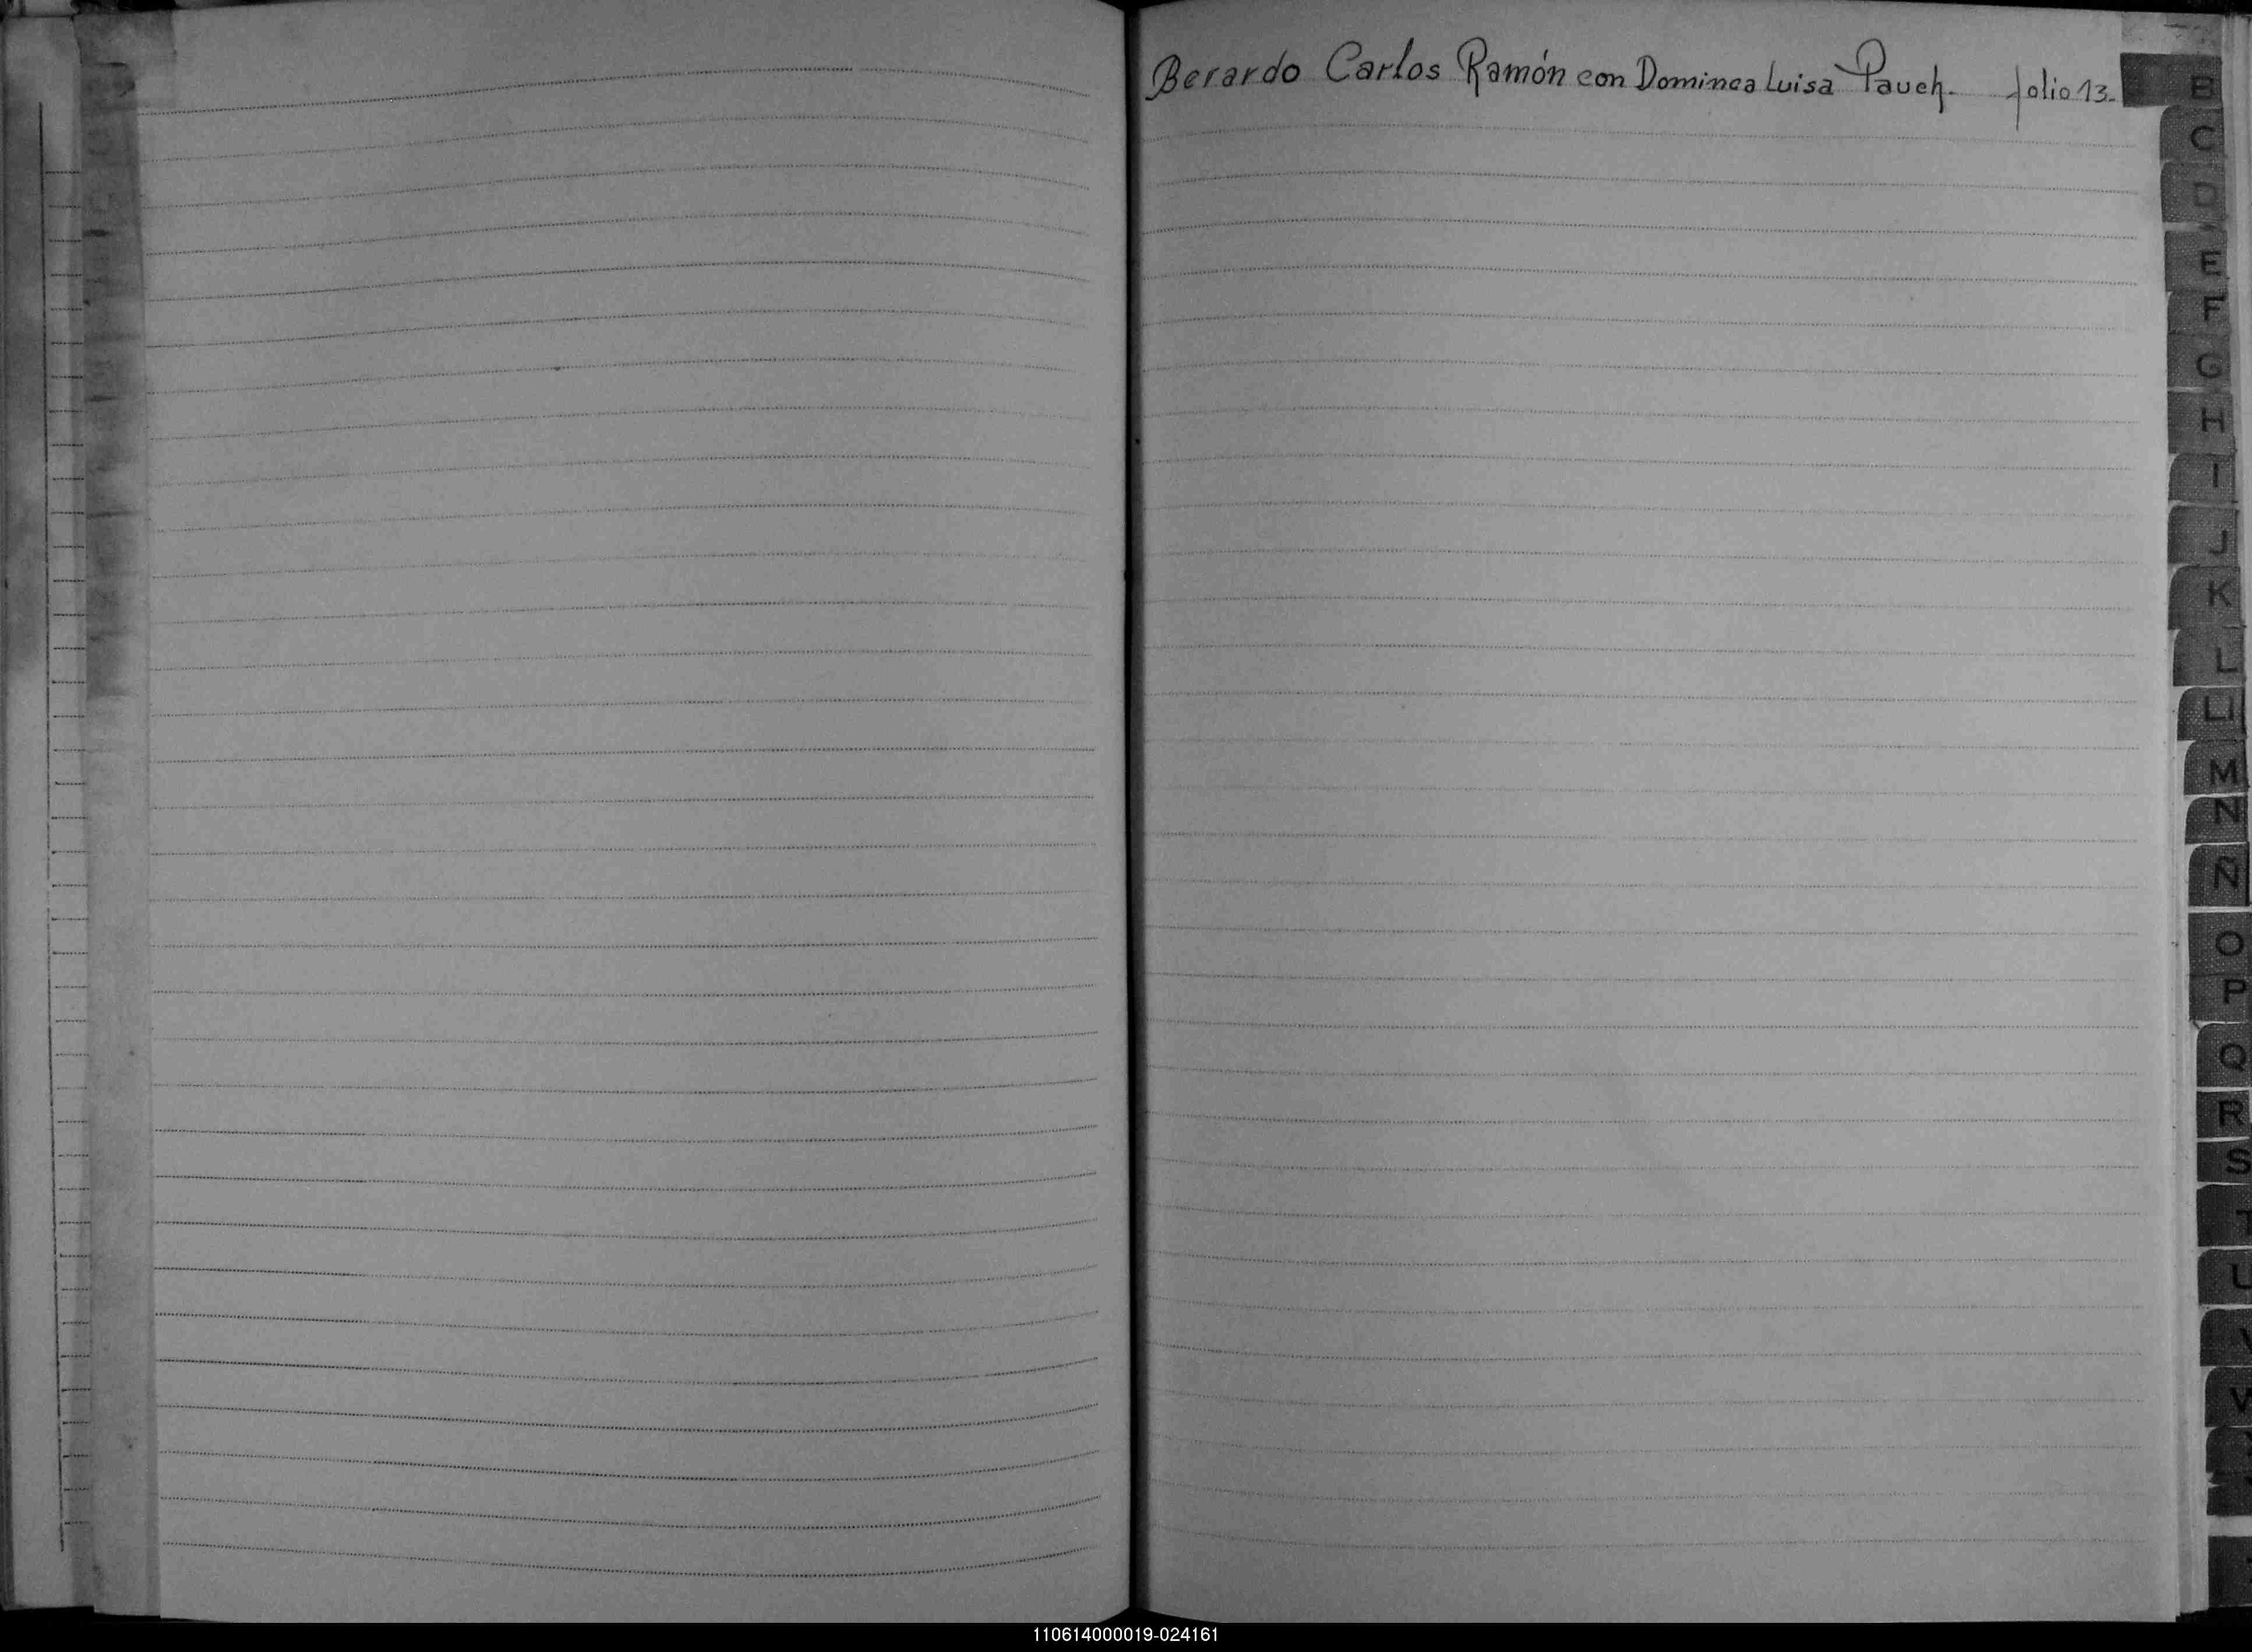 Berardo Carlos Ramón con Dominga Luisa Pauch. folio 13.
B
C
D
E
F
G
H
I
J
K
L
Ll
M
N
Ñ
O
P
Q
R
S
T
U
V
W
110614000019-024161